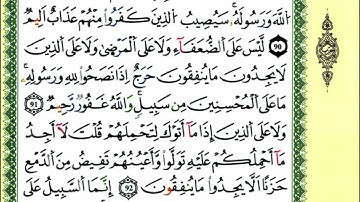 ٱللَّهَ وَرَسُولَهُۥ ۚ سَيُصِيبُ ٱلَّذِينَ كَفَرُوا۟ مِنْهُمْ عَذَابٌ أَلِيمٌ
٩٠ لَّيْسَ عَلَى ٱلضُّعَفَآءِ وَلَا عَلَى ٱلْمَرْضَىٰ وَلَا عَلَى ٱلَّذِينَ
لَا يَجِدُونَ مَا يُنفِقُونَ حَرَجٌ إِذَا نَصَحُوا۟ لِلَّهِ وَرَسُولِهِۦ ۚ
مَا عَلَى ٱلْمُحْسِنِينَ مِن سَبِيلٍ ۚ وَٱللَّهُ غَفُورٌ رَّحِيمٌ ٩١
وَلَا عَلَى ٱلَّذِينَ إِذَا مَآ أَتَوْكَ لِتَحْمِلَهُمْ قُلْتَ لَآ أَجِدُ
مَآ أَحْمِلُكُمْ عَلَيْهِ تَوَلَّوا۟ وَّأَعْيُنُهُمْ تَفِيضُ مِنَ ٱلدَّمْعِ
حَزَنًا أَلَّا يَجِدُوا۟ مَا يُنفِقُونَ ٩٢ إِنَّمَا ٱلسَّبِيلُ عَلَى